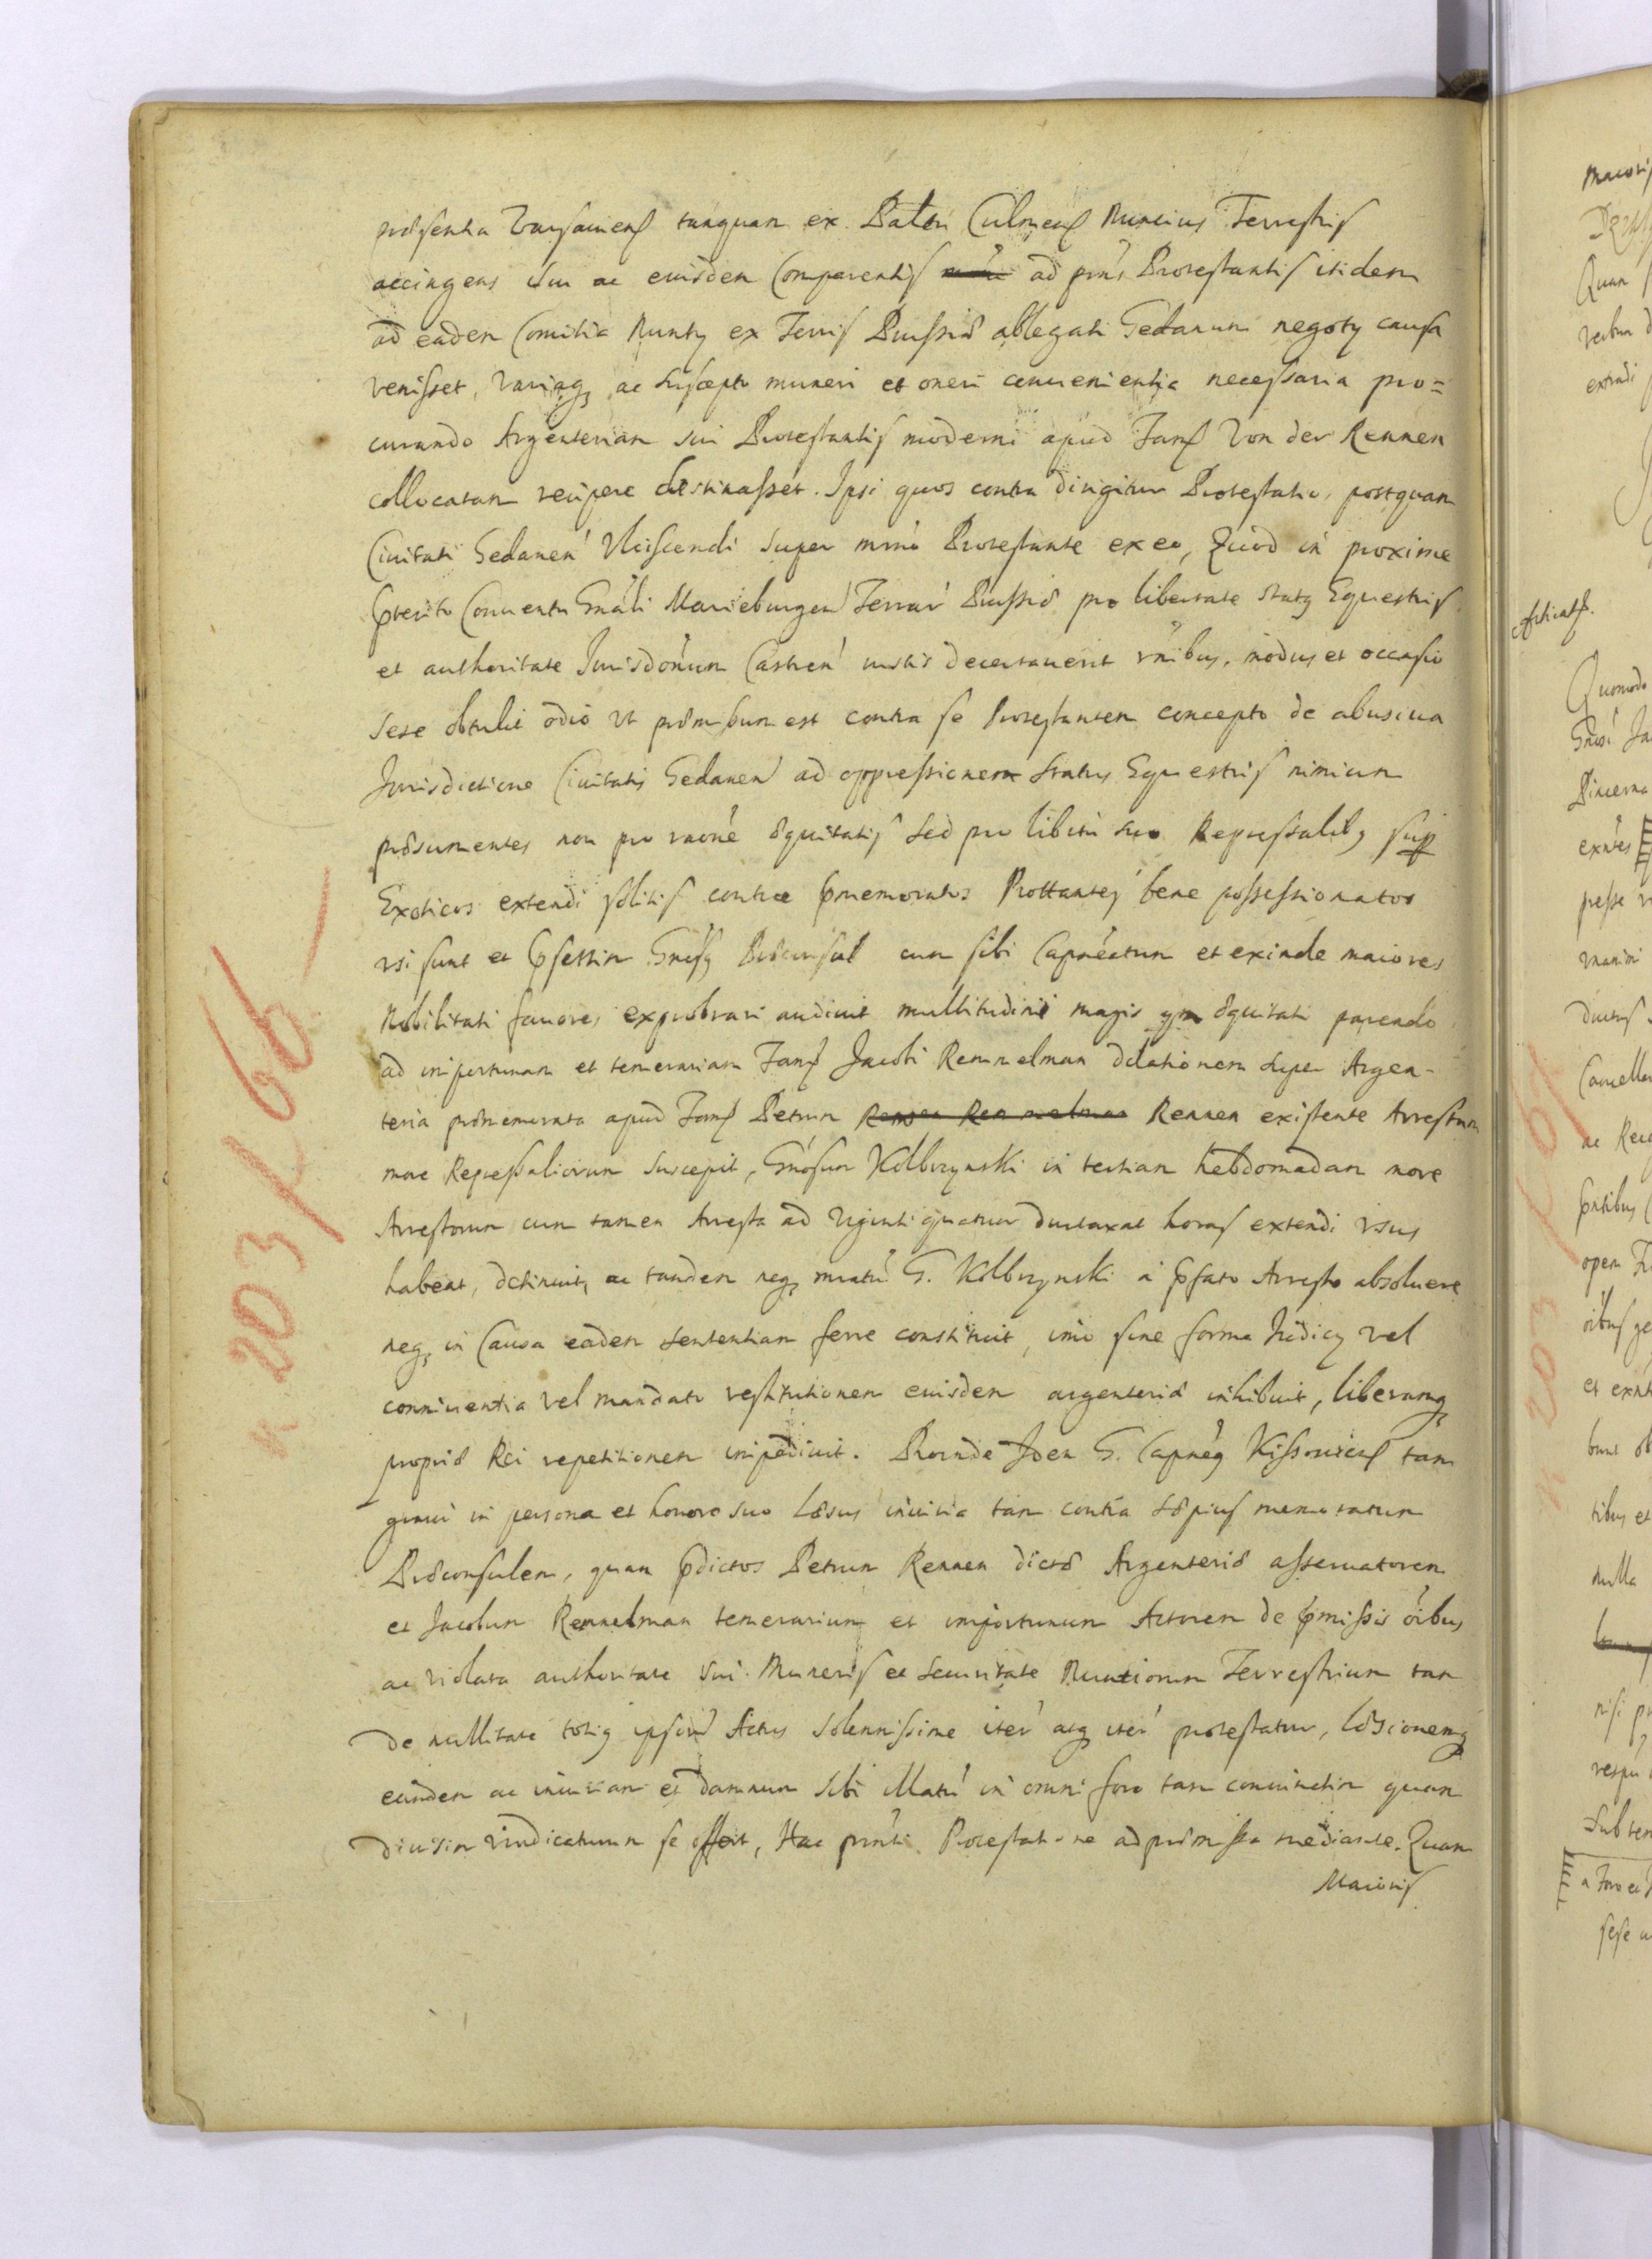 præsentia Varsauiens tanquam ex Palatū Culmens Nuncius Terrestris
accingens sui ac eiusdem Comparentis ad prns Protestantis itidem
ad eadem Comitia Nuntÿ ex Terris Prussiæ ablegati Gedanum negotÿ causa
venisset, variaq ac suscepto muneri et oneri conuenientia necessaria pro=
curando Argenteriam sui Protestantis moderni apud Fams Von der Rennen
collocatam recipere destinasset. Ipsi quos contra dirigitur Protestatio, postquam
Ciuitati Gedanen Vlciscendi super mmo Protestante ex eo, Quod in proxime
pterito Conuentu Gnāli Marieburgen Terrar Prussiæ pro libertate status Equestris
et authoritate Jurisdōnum Castren iustis decertauerit rnibus, modus et occasio
sese obtulit odio vt præmissum est contra se Protestantem concepto de abusiua
Jurisdictione Ciuitatis Gedanen ad oppressionem status Equestris nimium
præsumentes non pro raōne æquitatis sed pro libitu suo Repressalibq sup
Exoticos extendi solitis contra pmemoratos Prottantes bene possessionatos
vsi sunt et psertim Gnsq Præconsul cum sibi Capneatum et exinde maiores
Nobilitati fauores exprobrari audiuit multitudini magis qm æquitati parendo
ad importunam et temerariam Fams Jacobi Remmelman delationem super Argen-
teria præmemorata apud Fams Petrum Rennen existente Arrestum
more Repressaliorum suscepit, Gnōsum Kolbrzynski in tertiam hebdomadam more
Arrestorum cum tamen Arresta ad viginti quatuor duntaxat horas extendi vsus
habeat, detinuit, ac tandem neq mratū G. Kolbrzynski a pfato Arresto absoluere
neq in Causa eadem sententiam ferre constituit, imo sine forma Judicÿ vel
conniuentia vel mandato restitutionem eiusdem argenteriæ inhibuit, liberamq
propriæ Rei repetitionem impediuit. Proinde Idem G. Capneq Kissouiens tam
graui in persona et honore suo læsus iniuria tam contra sæpius memoratum
Præconsulem, quam pdictos Petrum Rennen dictæ Argenteriæ asseruatorem
et Jacobum Remmelman temerarium et importunum Actorem de pmissis oibus
ac violata authoritate sui Muneris et securitate Nuntiorum Terrestrium tam
de nullitate totiq ipsius Actus solennissime iter atq iter protestatur, læsionemq
eandem ac iniuriam et damnum sibi illatū in omni foro tam coniunctim quam
diuisim vindicaturum se offert, Hac prnti Protestatione ad præmissa mediante. Quam
Maioris
K 203 / 66